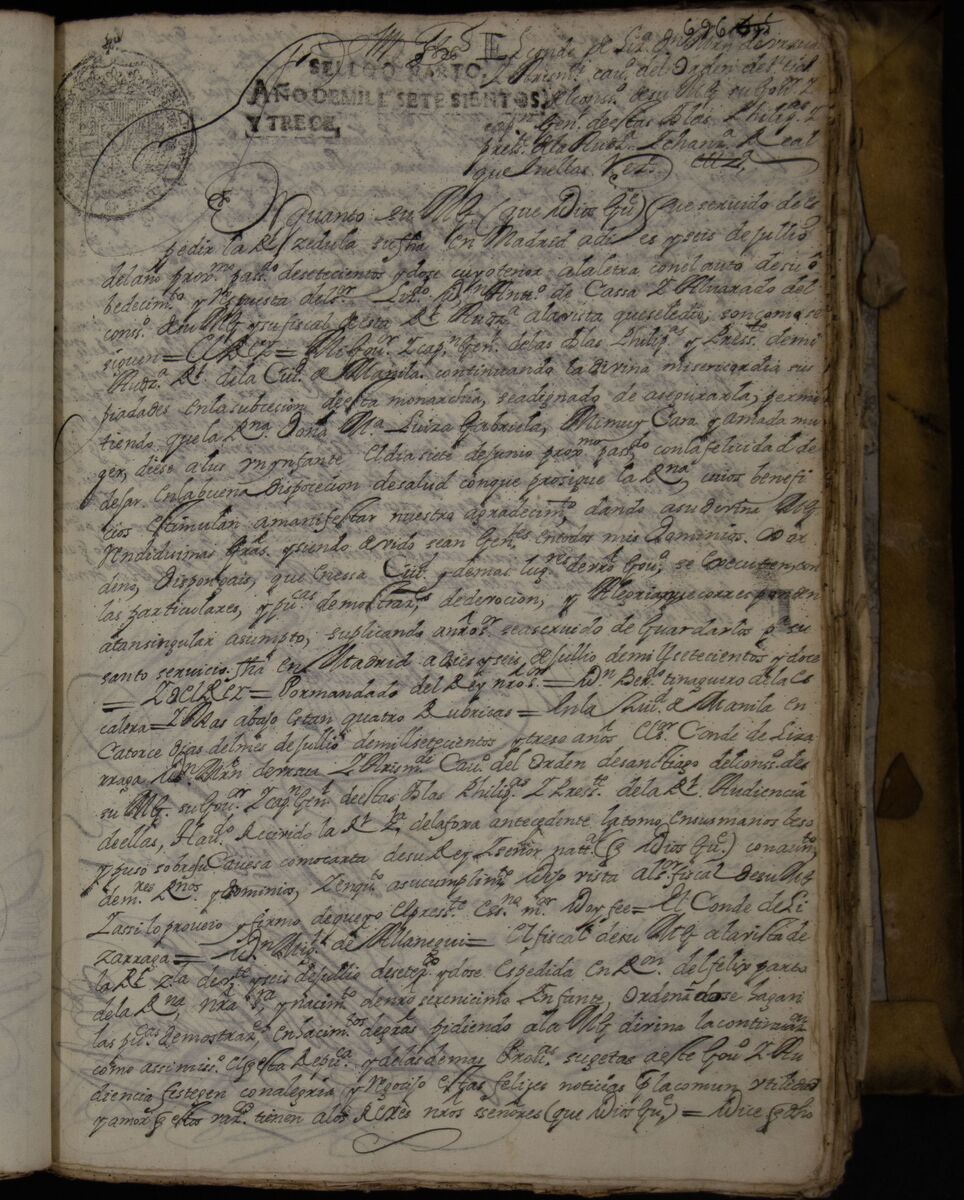 626
SELLO QVARTO,
AÑO DE MIL Y SETESIENTOS
Y TRECE,
El Conde de Liz.ª Dn Mrn de Vrsua
Y Arism.di cav.o del Orden de
del Conss.o de su Mg. su Gov.or Y
cap.n Gen. de estas Yslas Philip.as Y
press.te de la Real
que en ellas Resi.
En quanto su Mg (que Dios Gu.e) fue servido de es
pedir la Rl zedula su fha en Madrid a dies y seis de Jullio
del año prox.mo pass.do de setecientos y dose cuyo tenor a la letra con el auto de su o
bedecim.to y respuesta del s.or Liz.do Dn Antt.o de Cassa Y Alvarado del
cons.o de su Mg y su fiscal de esta Rl Aud.a a la vista que se le dio, son como se
siguen = El Rey = Mi Gov.or Y cap.n Gen. de las Yslas Philip.s y Press.te de mi
Aud.a Rl de la Ciu.d de Manila. continuando la divina misericordia sus
piadades en la subcecion de esta monarchia, se a dignado de asegurarla, permi
tiendo que la Rna Doña M.a Luiza Gabriela, Mi muy Cara y amada mu
ger, diese a lus un ynfante El dia siete de Junio prox.mo pas.do con la felicidad de
dejar en la buena Disposicion de salud con que prosigue la Rna, cuios benefi
cios estimulan a manifestar nuestro agradecim.to dando a su divina Mg
rendidisimas Gras. y siendo devido sean Gen.es en todos mis Dominios. Os or
deno, Dispongais, que en essa Ciu.d y demas lug.res de vro Gov.o, se executen, con
las particulares, y pu.cas demostraz.s de devocion, y Alegria que corresponden
a tan singular asumpto, suplicando a nro s.or sea servido de Guardarlos p.a su
santo servicio. fha en Madrid a dies y seis de Jullio de mill setecientos y dose
= YO EL REY = Por mandado del Rey nro s.or = Dn Ber.do tinaguero de la Es
calera = Y Mas abajo estan quatro Rubricas = En la Ciu.d de Manila en
Catorce dias del mes de Jullio de mill setecientos y trese años El s.or Conde de Liza
rraga Dn Mrn de Vrsua Y Arism.di Cav.o del Orden de Sanctiago del cons.o de
su Mg. su Gov.or Y cap.n Gen. de estas Yslas Philip.as Y Press.te de la Rl Audiencia
de ellas, Haviendo Recivido la Rl Z.a de la foxa antecedente la tomo en sus manos beso
y puso sobre su Cavesa como carta de su Rey Y señor natt.l (q Dios Gu.e) con acum.to
de m.res Rnos y Dominios, Y en qu.to a su cumplim.to dijo vista al s.or fiscal de su Mg
Y assi lo proveio y firmo de que yo El press.te Ess.no m.or Doy fee = El Conde de Li
zarraga = Dn Mig.l de Allanegui = El fiscal de su Mg a la vista de
la Rl Z.a de dies y seis de Jullio de setez.s y dose Espedida en Ron. del felis parto
de la Rna, nra s.ra y nacim.to de nro serenicimo Enfante, Ordenandose hagan
las pu.cas demostraz.s en hacim.tos de gras pidiendo a la Mg divina la continuaz.on
como assimis.o q esta Repu.ca y de las demas Prov.s sugetas a este Gov.o Y Au
diencia festegen con alegria y regocijo estas felises noticias
y amor q estos vaz.s tienen a los Reyes nros señores (que Dios Gu.e) = Dice q